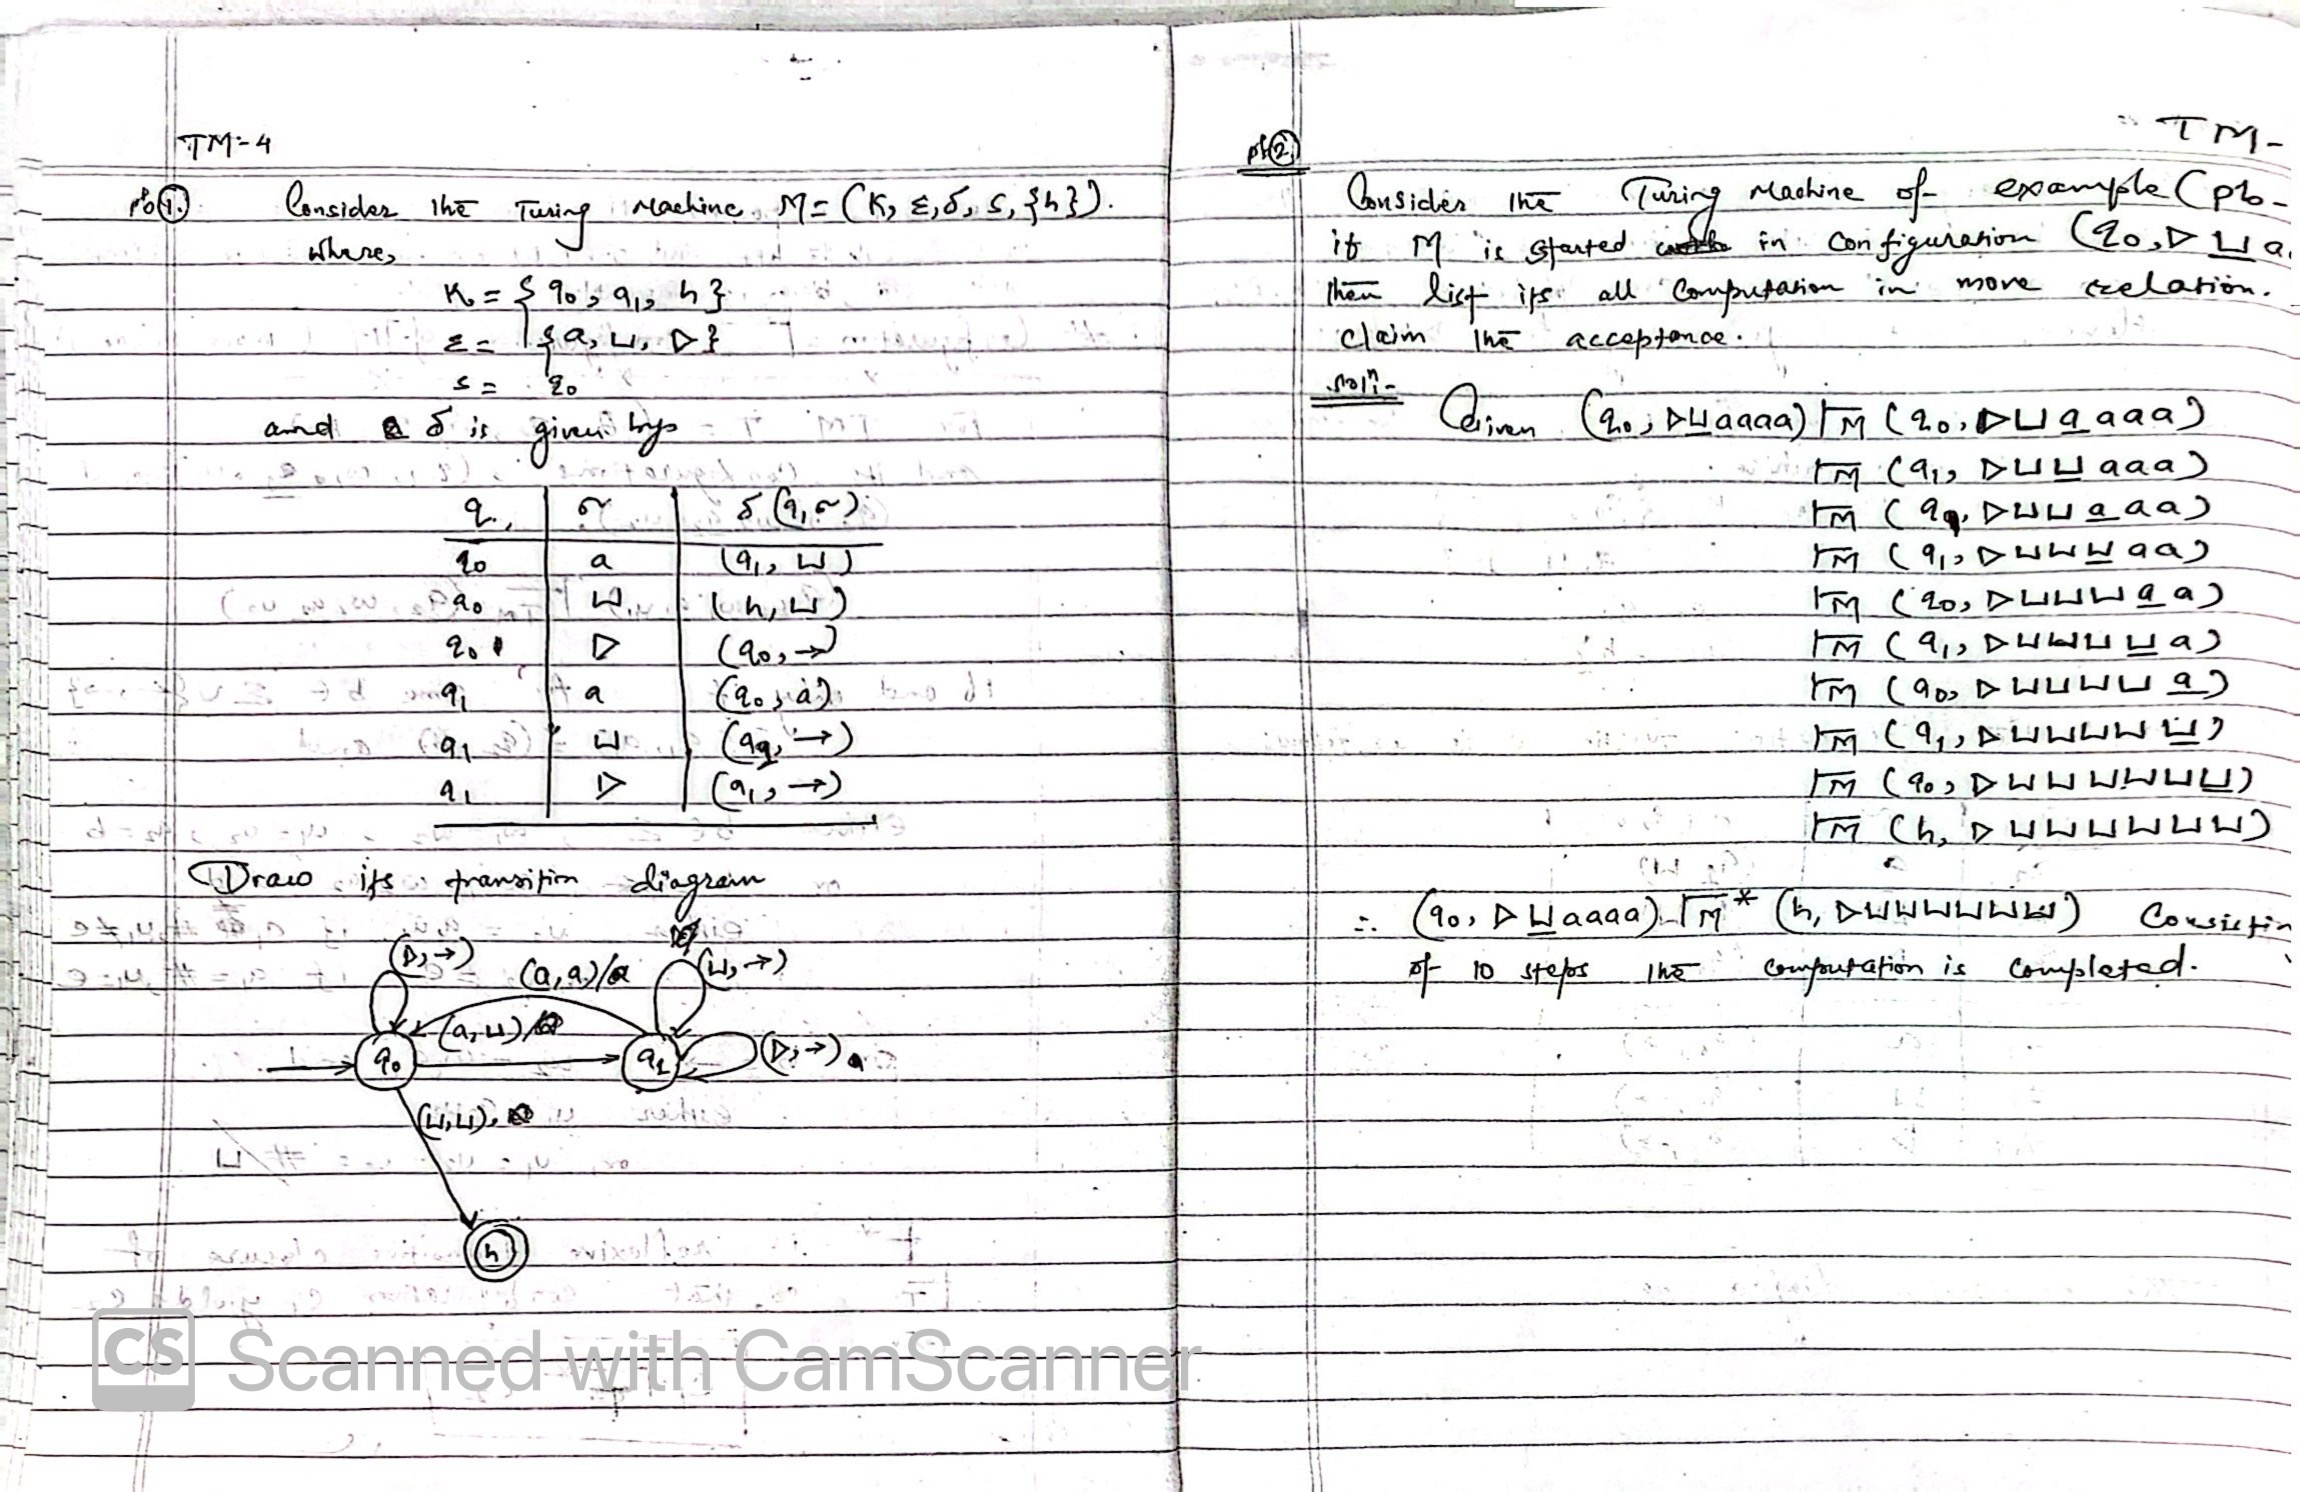 TM-4
pb①. Consider the Turing Machine M = (K, Σ, δ, s, {h}).
where,
K = {q₀, q₁, h}
Σ = {a, ⊔, ▷}
s = q₀
and δ is given by
q σ δ(q,σ)
q₀ a (q₁, ⊔)
q₀ ⊔ (h, ⊔)
q₀ ▷ (q₀, →)
q₁ a (q₀, a)
q₁ ⊔ (q₀, →)
q₁ ▷ (q₁, →)
Draw its transition diagram
(▷,→) (a,a)/ (⊔,→)
(a,⊔)/
q₀ q₁ (▷,→)
(⊔,⊔),
h
CS Scanned with CamScanner
TM-
pb②
Consider the Turing Machine of example (pb-
if M is started in configuration (q₀, ▷⊔̲a
then list its all computation in move relation.
claim the acceptance.
Solⁿ-
Given (q₀, ▷⊔̲aaaa) ⊢M (q₀, ▷⊔a̲aaa)
⊢M (q₁, ▷⊔⊔̲aaa)
⊢M (q₀, ▷⊔⊔a̲aa)
⊢M (q₁, ▷⊔⊔⊔̲aa)
⊢M (q₀, ▷⊔⊔⊔a̲a)
⊢M (q₁, ▷⊔⊔⊔⊔̲a)
⊢M (q₀, ▷⊔⊔⊔⊔a̲)
⊢M (q₁, ▷⊔⊔⊔⊔⊔̲)
⊢M (q₀, ▷⊔⊔⊔⊔⊔⊔̲)
⊢M (h, ▷⊔⊔⊔⊔⊔⊔)
∴ (q₀, ▷⊔̲aaaa) ⊢M* (h, ▷⊔⊔⊔⊔⊔⊔̲) Consistin
of 10 steps the computation is completed.